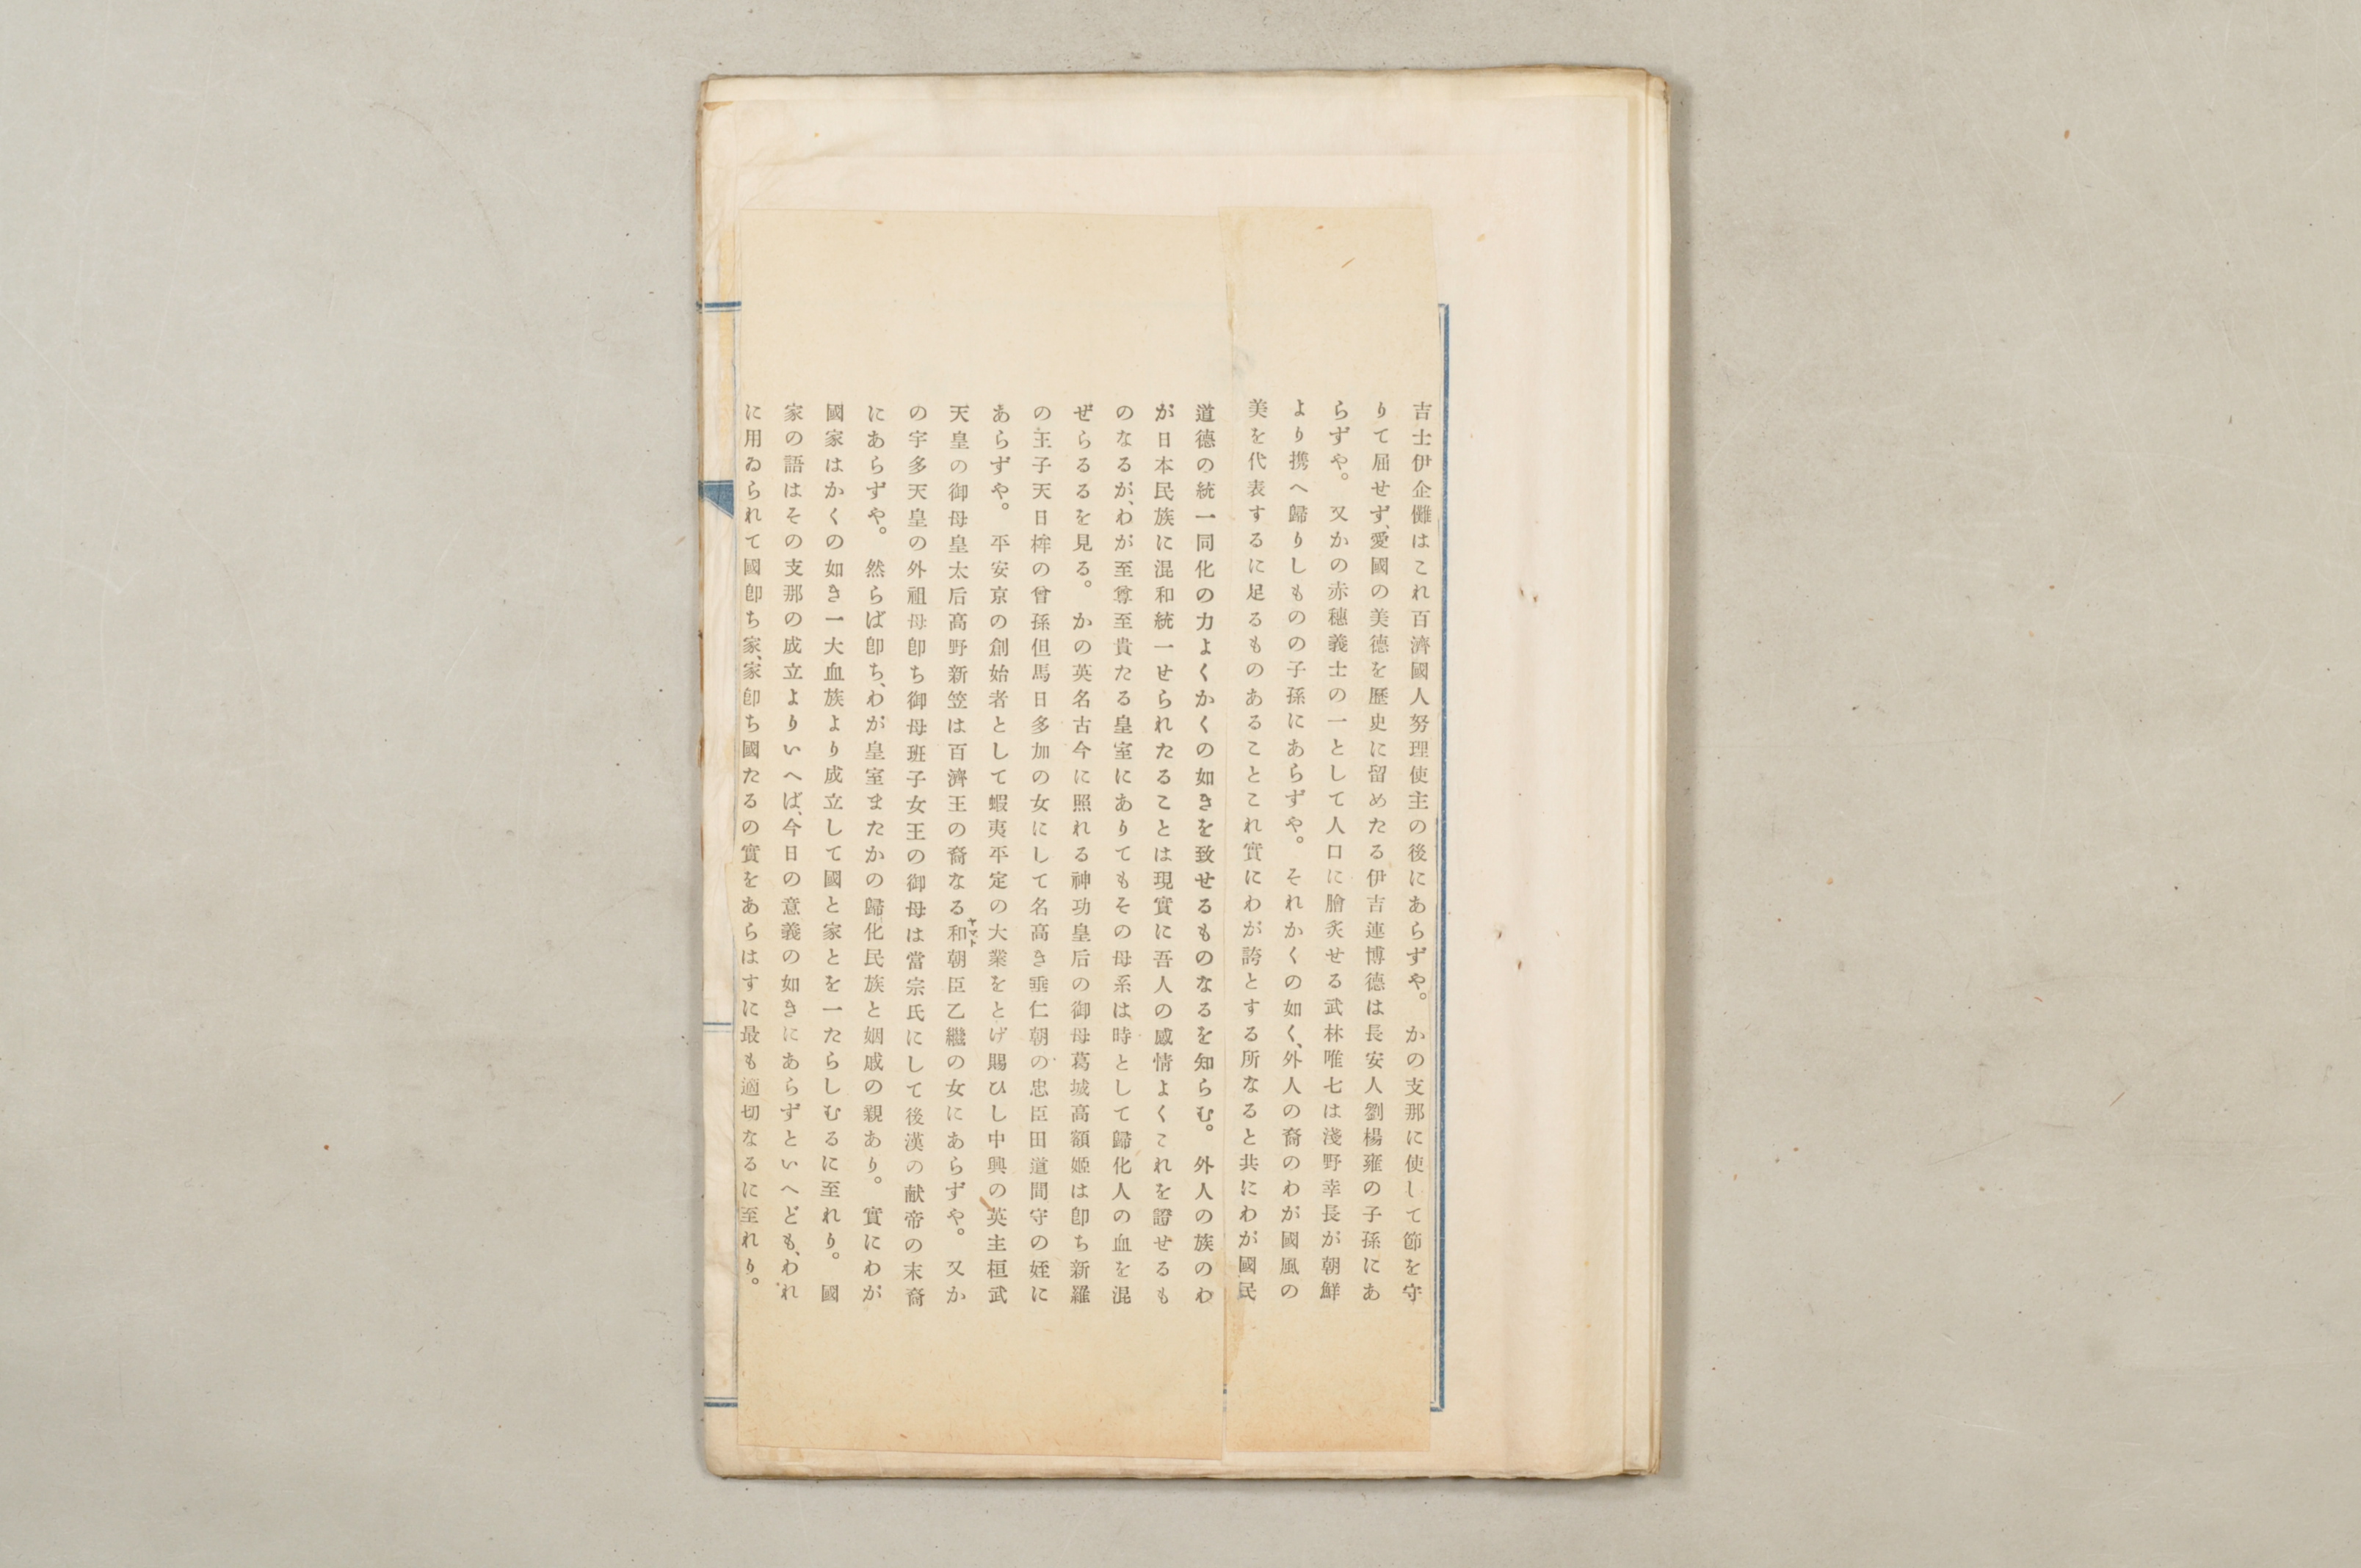 吉士伊企儺はこれ百濟國人努理使主の後にあらずや。かの支那に使して節を守
りて屈せず、愛國の美德を歷史に留めたる伊吉連博德は長安人劉楊雍の子孫にあ
らずや。又かの赤穗義士の一として人口に膾炙せる武林唯七は淺野幸長が朝鮮
より携へ歸りしものの子孫にあらずや。それかくの如く、外人の裔のわが國風の
美を代表するに足るものあることこれ實にわが誇とする所なると共にわが國民
道德の統一同化の力よくかくの如きを致せるものなるを知らむ。外人の族のわ
が日本民族に混和統一せられたることは現實に吾人の感情よくこれを證せるも
のなるが、わが至尊至貴たる皇室にありてもその母系は時として歸化人の血を混
ぜらるるを見る。かの英名古今に照れる神功皇后の御母葛城高額姬は卽ち新羅
の王子天日桙の曾孫但馬日多加の女にして名高き垂仁朝の忠臣田道間守の姪に
あらずや。平安京の創始者として蝦夷平定の大業をとげ賜ひし中興の英主桓武
天皇の御母皇太后高野新笠は百濟王の裔なる和朝臣乙繼の女にあらずや。又か
ヤマト
の宇多天皇の外祖母卽ち御母班子女王の御母は當宗氏にして後漢の献帝の末裔
にあらずや。然らば卽ち、わが皇室またかの歸化民族と姻戚の親あり。實にわが
國家はかくの如き一大血族より成立して國と家とを一たらしむるに至れり。國
家の語はその支那の成立よりいへば、今日の意義の如きにあらずといへども、われ
に用ゐられて國卽ち家、家卽ち國たるの實をあらはすに最も適切なるに至れり。